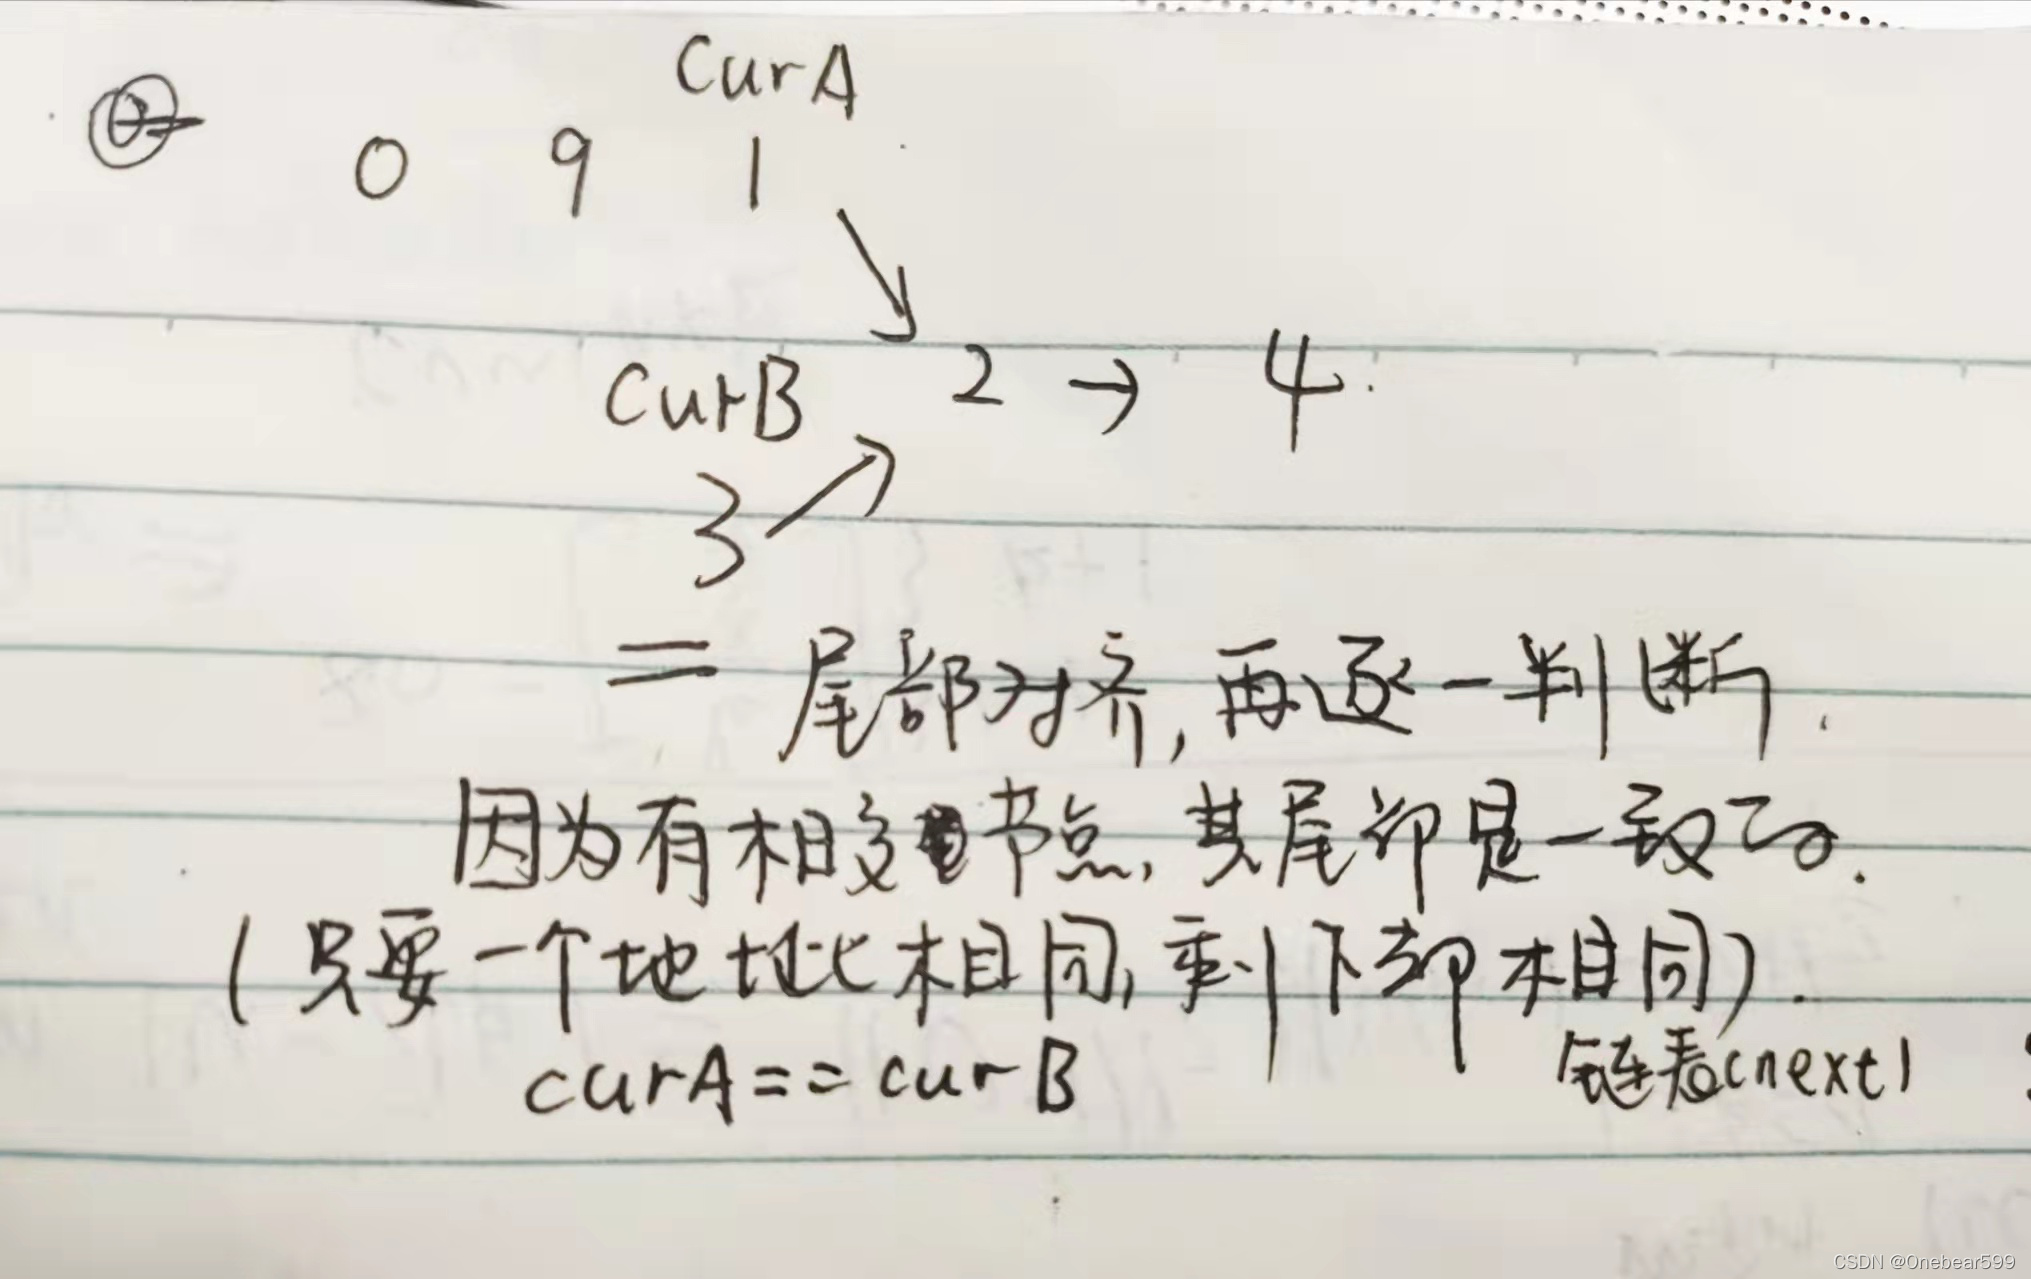 CurA
0 9 1
CurB 2 → 4
3
= 尾部对齐,再逐一判断.
因为有相交节点,其尾部是一致的.
(只要一个地址相同,剩下都相同).
curA==curB 链表(next)
CSDN @Onebear599